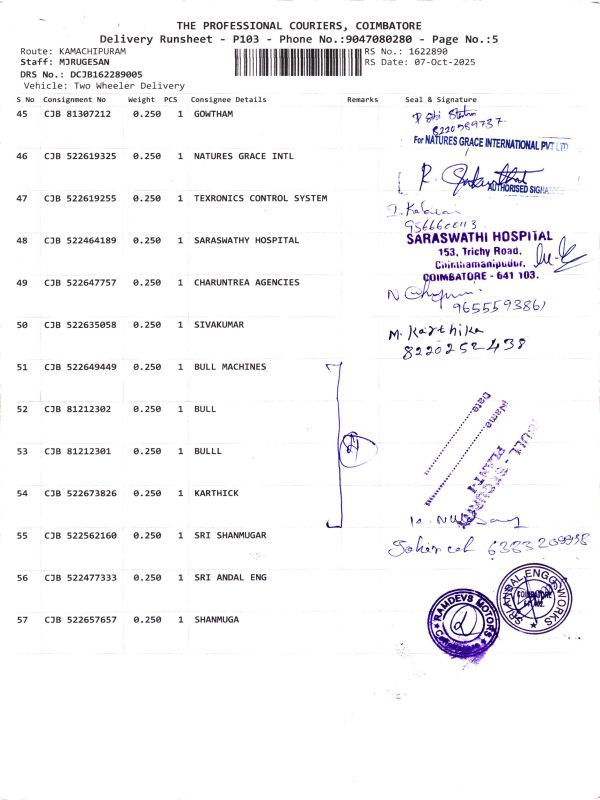 THE PROFESSIONAL COURIERS, COIMBATORE
Delivery Runsheet - P103 - Phone No.:9047080280 - Page No.:5
Route: KAMACHIPURAM RS No.: 1622890
Staff: MJRUGESAN RS Date: 07-Oct-2025
DRS No.: DCJB162289005
Vehicle: Two Wheeler Delivery
S No Consignment No Weight PCS Consignee Details Remarks Seal & Signature
45 CJB 81307212 0.250 1 GOWTHAM
8220589737
For NATURES GRACE INTERNATIONAL PVT LTD
46 CJB 522619325 0.250 1 NATURES GRACE INTL
AUTHORISED
47 CJB 522619255 0.250 1 TEXRONICS CONTROL SYSTEM
9566600113
48 CJB 522464189 0.250 1 SARASWATHY HOSPITAL
SARASWATHI HOSPITAL
153, Trichy Road,
Chinthamanipudur,
COIMBATORE - 641 103.
49 CJB 522647757 0.250 1 CHARUNTREA AGENCIES
9655593861
50 CJB 522635058 0.250 1 SIVAKUMAR
M. Karthika
8220252438
51 CJB 522649449 0.250 1 BULL MACHINES
52 CJB 81212302 0.250 1 BULL
Name
Date
53 CJB 81212301 0.250 1 BULLL
54 CJB 522673826 0.250 1 KARTHICK
55 CJB 522562160 0.250 1 SRI SHANMUGAR
6383209998
56 CJB 522477333 0.250 1 SRI ANDAL ENG
57 CJB 522657657 0.250 1 SHANMUGA
RAMDEVS MOTORS